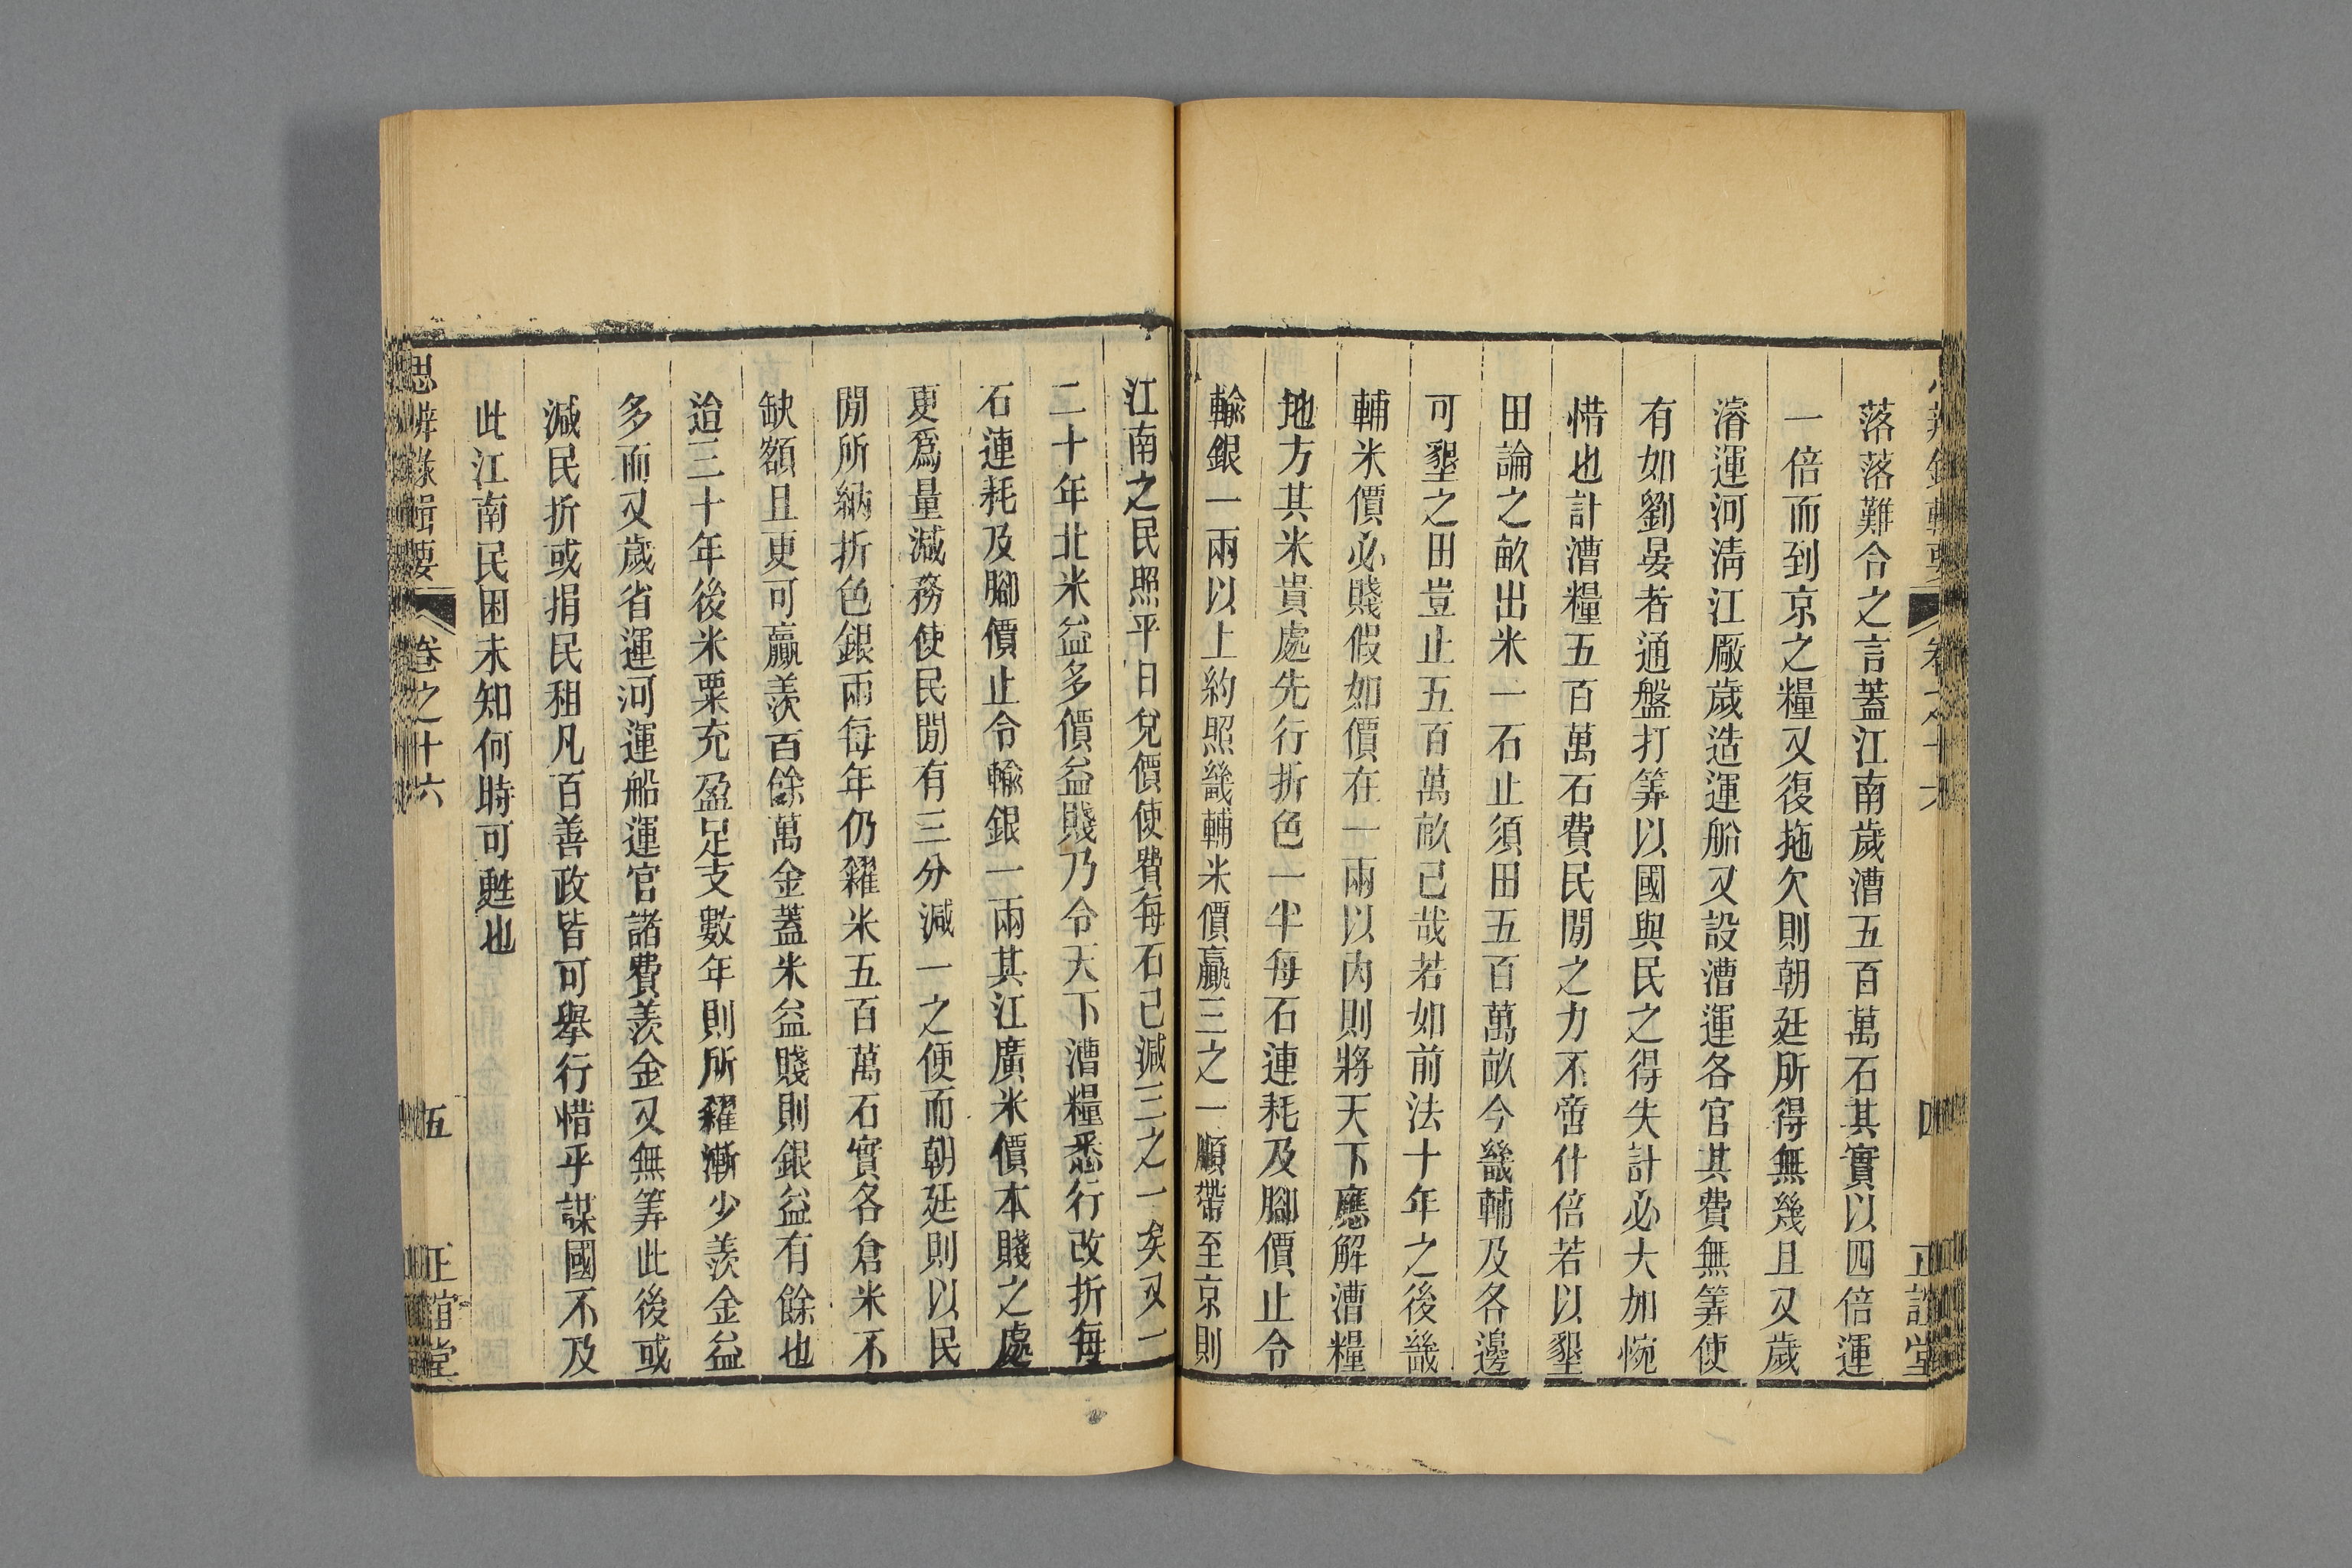 落落難合之言蓋江南歲漕五百萬石其實以四倍運
一倍而到京之糧又復拖欠則朝廷所得無幾且又歲
濬運河淸江廠歲造運船又設漕運各官其費無筭使
有如劉晏者通盤打筭以國與民之得失計必大加惋
惜也計漕糧五百萬石費民閒之力不啻什倍若以墾
田論之畝出米一石止須田五百萬畝今畿輔及各邊
可墾之田豈止五百萬畝已哉若如前法十年之後畿
輔米價必賤假如價在一兩以內則將天下應解漕糧
地方其米貴處先行折色一半每石連耗及腳價止令
輸銀一兩以上約照畿輔米價贏三之一順帶至京則
江南之民照平日兌價使費每石已減三之一矣又一
二十年北米益多價益賤乃令天下漕糧悉行改折每
石連耗及腳價止令輸銀一兩其江廣米價本賤之處
更爲量減務使民閒有三分減一之便而朝廷則以民
閒所納折色銀兩每年仍糴米五百萬石實各倉米不
缺額且更可贏羨百餘萬金蓋米益賤則銀益有餘也
迨三十年後米粟充盈足支數年則所糴漸少羨金益
多而又歲省運河運船運官諸費羨金又無筭此後或
減民折或捐民租凡百善政皆可舉行惜乎謀國不及
此江南民困未知何時可甦也
思辨錄輯要 卷之十六 五 正誼堂